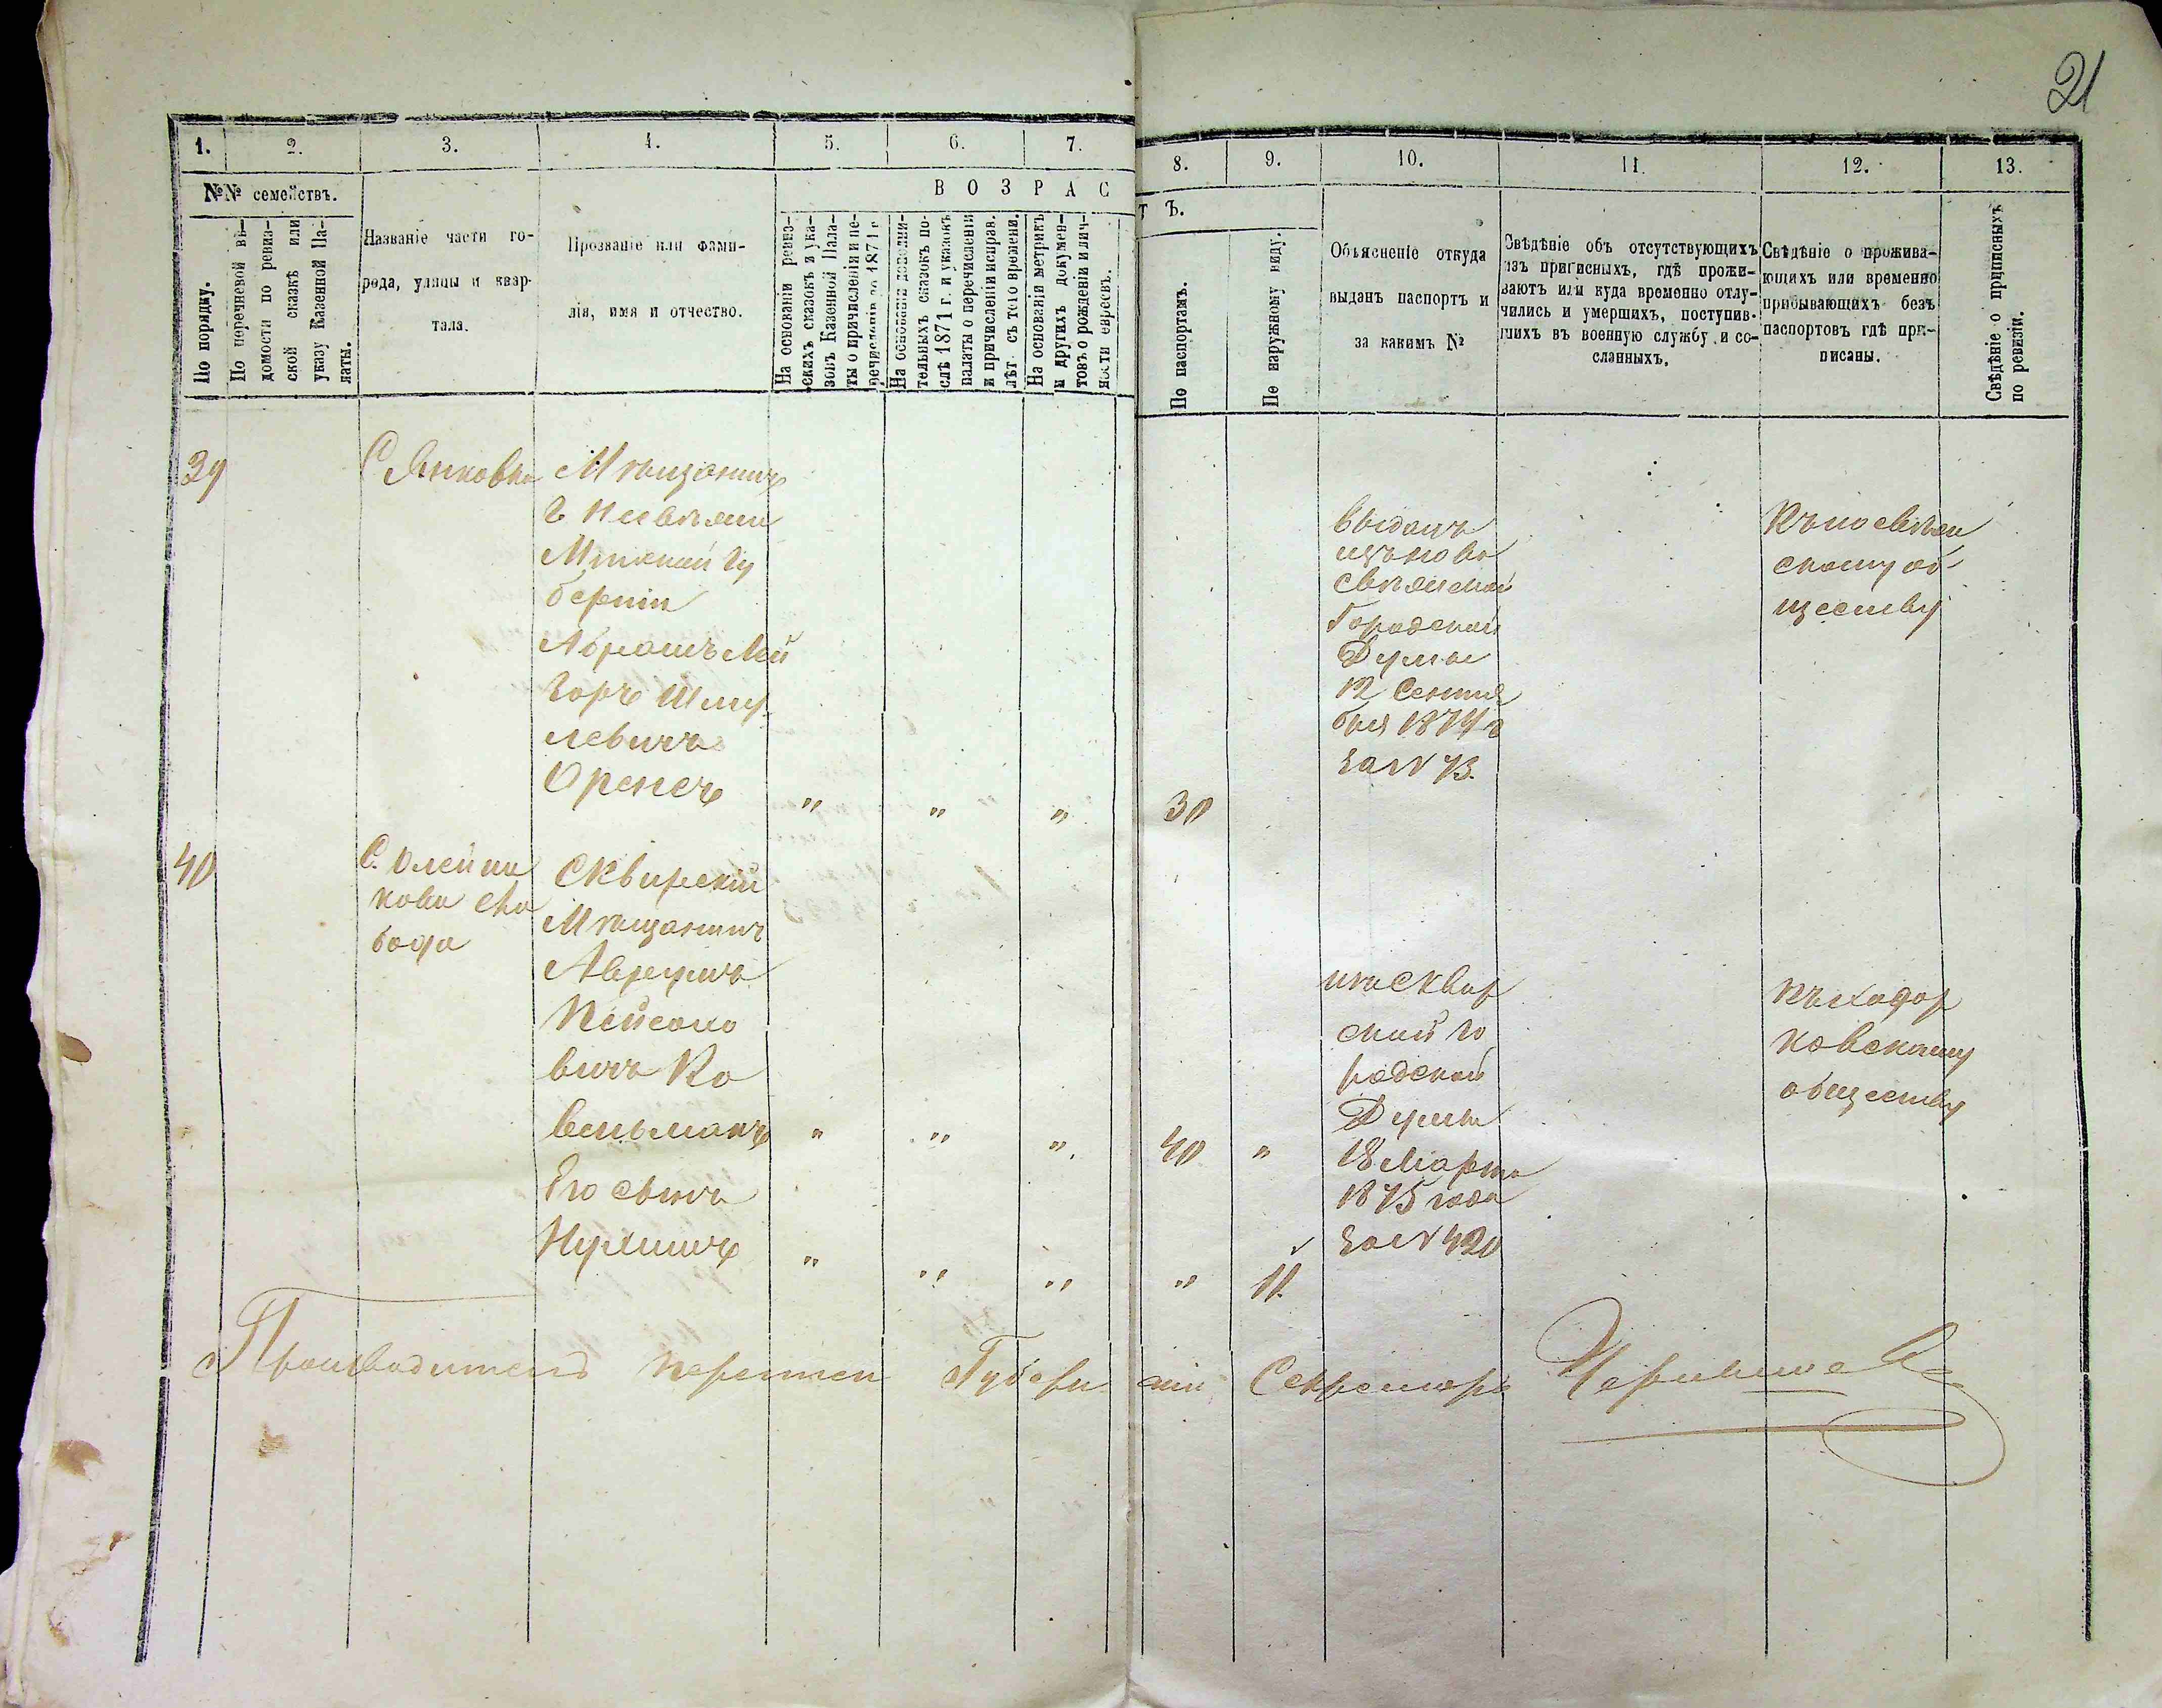 21
1. 2. 3. 4. 5. 6. 7. 8. 9. 10. 11. 12. 13.
№№ семействъ.
По порядку.
По перечневой вѣ-
домости по ревиз-
ской сказкѣ или
указу Казенной Па-
латы.
Названіе части го-
рода, улицы и квар-
тала.
Прозваніе или фами-
лія, имя и отчество.
ВОЗРАСТЪ.
На основаніи ревиз-
скихъ сказокъ и ука-
зовъ Казенной Пала-
ты о причисленіи и пе-
речисленіи до 1871 г.
На основаніи дополни-
тельныхъ сказокъ по-
слѣ 1871 г. и указовъ
палаты о перечисленіи
и причисленіи исправ.
лѣт. съ того времени.
На основаніи метрикъ
и другихъ докумен-
товъ о рожденіи и лич-
ности евреевъ.
По паспортамъ.
По наружному виду.
Объясненіе откуда
выданъ паспортъ и
за какимъ №
Свѣдѣніе объ отсутствующихъ
изъ приписныхъ, гдѣ прожи-
ваютъ или куда временно отлу-
чились и умершихъ, поступив-
шихъ въ военную службу и со-
сланныхъ.
Свѣдѣніе о прожива-
ющихъ или временно
прибывающихъ безъ
паспортовъ гдѣ при-
писаны.
Свѣдѣніе о приписныхъ
по ревизіи.
39
С Янковка
Мѣщанинъ
Минской Гу
берніи
Абрамъ Лей
Шму
левичъ
" " "
30
выданъ
изъ ново
свѣянской
Городской
Думы
12 Сентя
бря 1874 г
за № 73.
скому об
ществу
40
С. Олейни
кова Сло
бода
Сквирскій
Мѣщанинъ
Аврумъ
Пейсахо
вичъ Ко
вельманъ
" " "
40 "
Его сынъ
Нухимъ
" " " "
11.
изъ Сквир
ской Го
родской
Думы
18 Марта
1875 года
за № 420
къ Ходор
ковскому
обществу
Производитель перепис Губернскій Секретарь